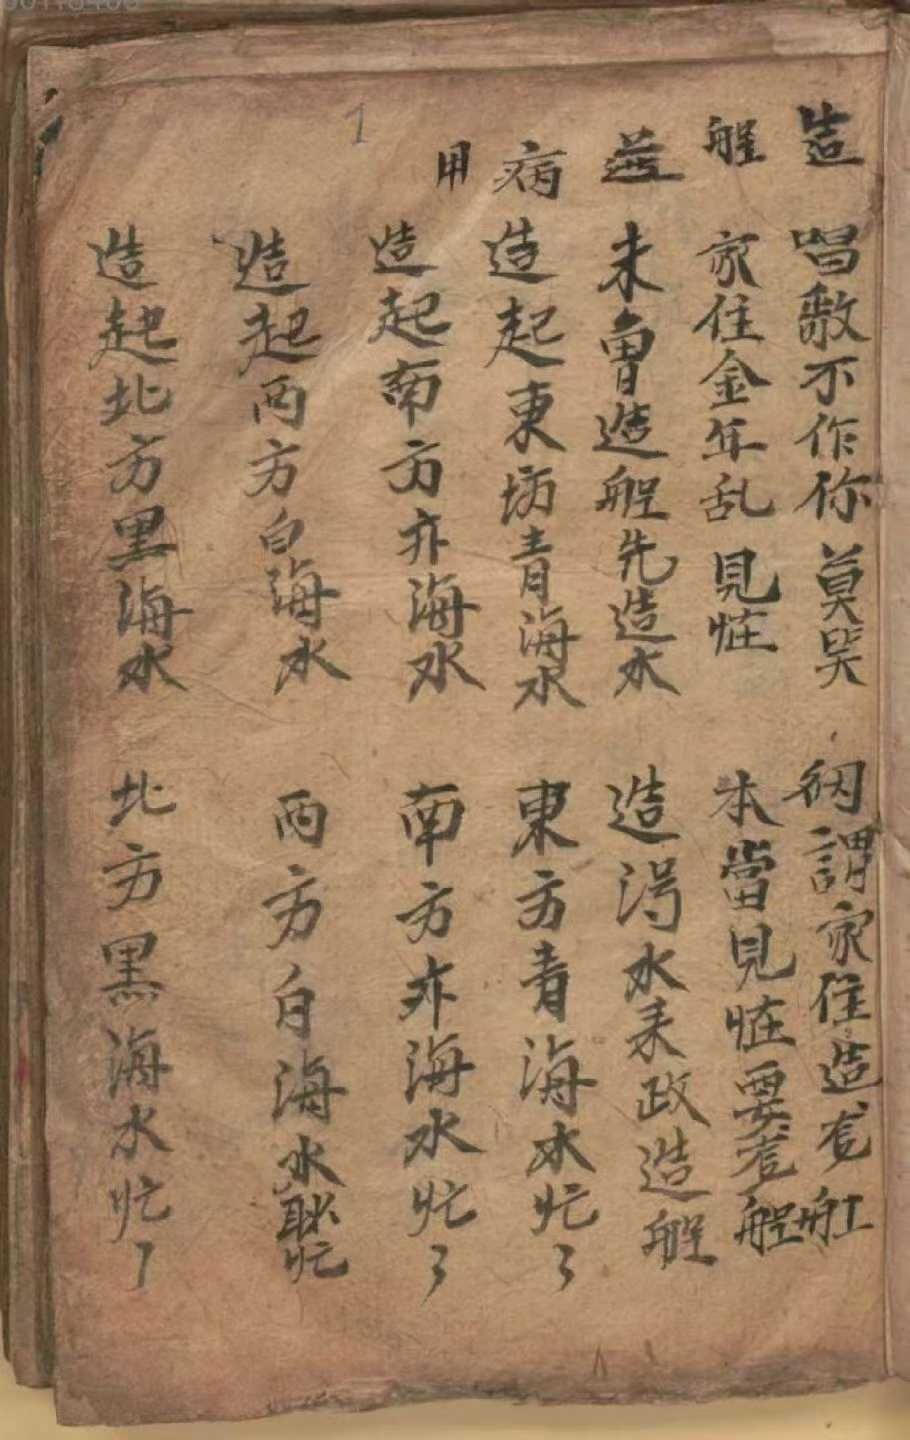 造船並病用
唱歌不作你莫哭
𥿄謂家住造卺舡
家住金年乱見怪
本當見怪要卺船
未曽造船先造水
造得水来政造船
造起東坊青海水
東方青海水忙了
造起南方亦海水
南方亦海水忙了
造起西方白海水
西方白海水忙
造起北方黒海水
北方黒海水忙了
1